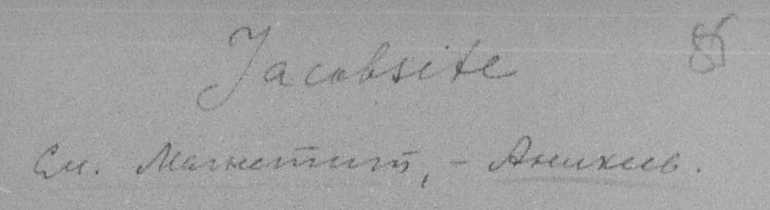 Jacobsite
См. Магнетит, - Аникеев.